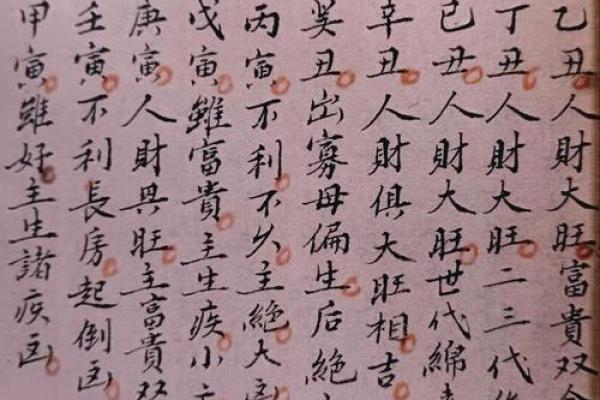 乙丑人財大旺富貴双全
丁丑人財大旺二三代
己丑人財大旺世代綿
辛丑人財俱大旺相吉
癸丑出寡母偏生后絕
丙寅不利不久主絕大凶
戊寅雖富貴主生疾小
庚寅人財具旺主富貴双
壬寅不利長房起倒凶
甲寅雖好主生諸疾凶